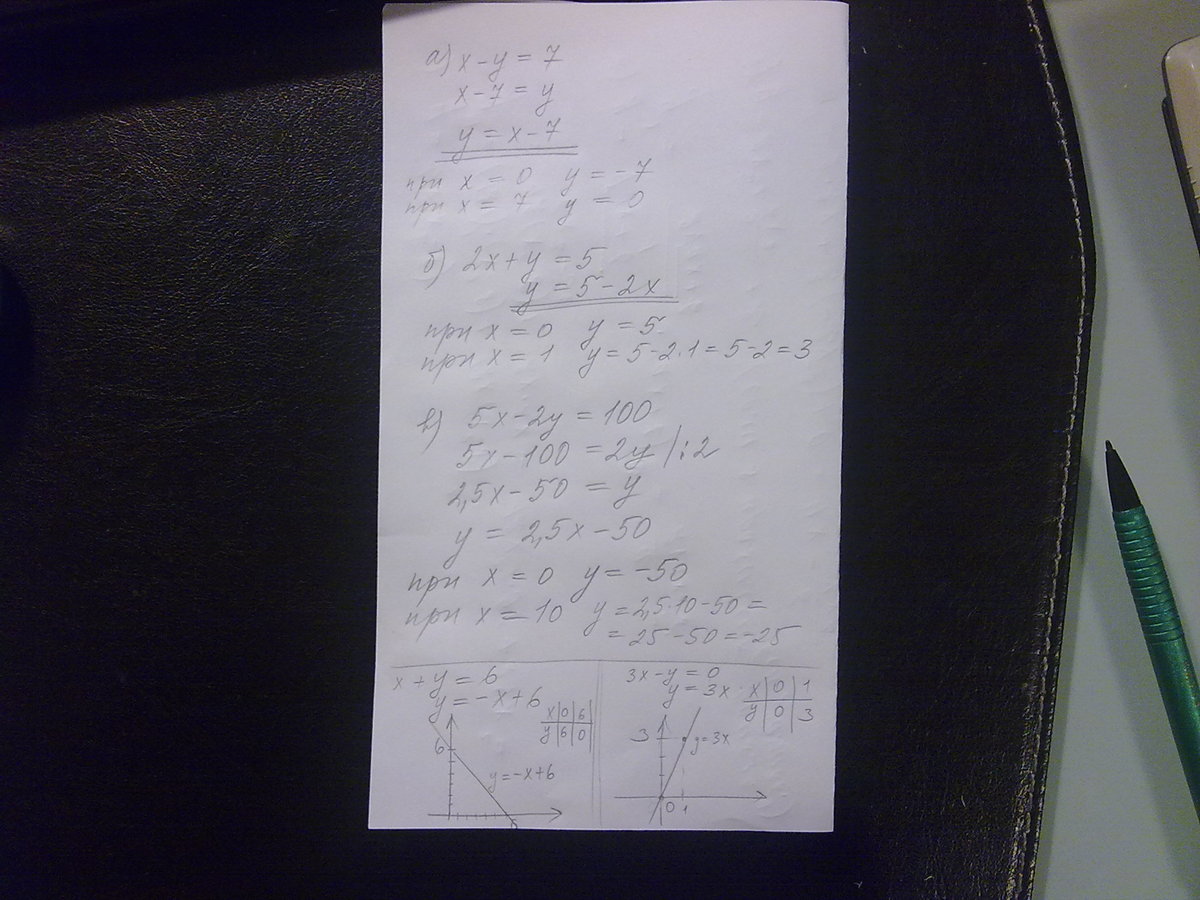 а) x-y = 7
x-7 = y
y = x-7
при x = 0 y = -7
при x = 7 y = 0
б) 2x+y = 5
y = 5-2x
при x = 0 y = 5
при x = 1 y = 5-2·1 = 5-2 = 3
в) 5x-2y = 100
5x-100 = 2y |:2
2,5x-50 = y
y = 2,5x-50
при x = 0 y = -50
при x = 10 y = 2,5·10-50 =
= 25-50 = -25
x+y = 6
y = -x+6
x|0|6
y|6|0
6
y = -x+6
6
3x-y = 0
y = 3x
x|0|1
y|0|3
3
y = 3x
0 1